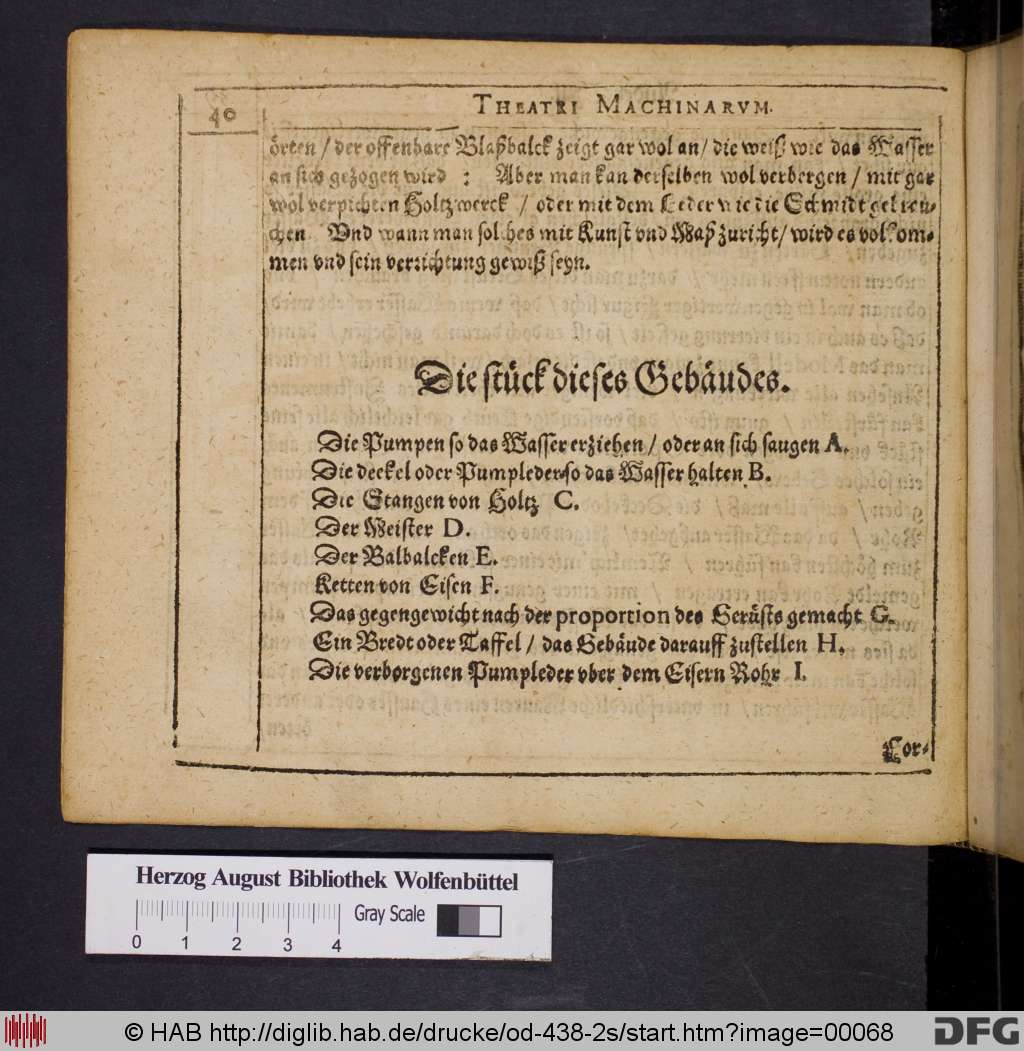 40
THEATRI MACHINARVM.
örten / der offenbare Blaßbalck zeigt gar wol an / die weiß wie das Wasser
an sich gezogen wird : Aber man kan derselben wol verbergen / mit gar
wol verpichten Holtzwerck / oder mit dem Leder wie die Schmidt gebreu-
chen. Vnd wann man solches mit Kunst vnd Maß zuricht / wird es volkom-
men vnd sein verrichtung gewiß seyn.
Die stück dieses Gebäudes.
Die Pumpen so das Wasser erziehen / oder an sich saugen A.
Die deckel oder Pumpleder so das Wasser halten B.
Die Stangen von Holtz C.
Der Meister D.
Der Balbalcken E.
Ketten von Eisen F.
Das gegengewicht nach der proportion des Gerüsts gemacht G.
Ein Bredt oder Taffel / das Gebäude darauff zustellen H.
Die verborgenen Pumpleder vber dem Eisern Rohr I.
Cor-
Herzog August Bibliothek Wolfenbüttel
Gray Scale
0 1 2 3 4
© HAB http://diglib.hab.de/drucke/od-438-2s/start.htm?image=00068
DFG